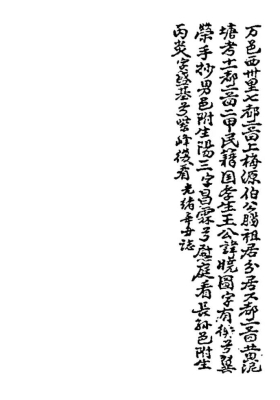 万邑西卅里七都二啚上梅源伯公腸祖居分居六都二啚黄泥
塘考士都二啚二甲民籍国孝生王公諱曉圃字有機号巽
榮手抄男邑附生陽三字昌霖号慰庭看長孫邑附生
丙炎字盛基号紫峰後看光緒辛丑誌